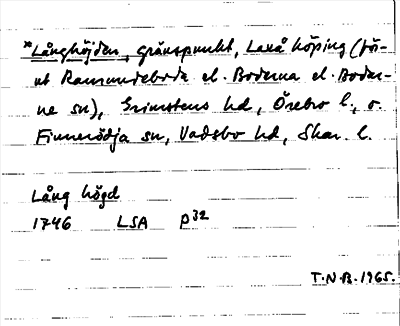 *Långhöjden, gränspunkt, Laxå köping (för-
ut Ramundeboda el. Boderna el. Boder-
ne sn), Grimstens hd, Örebro l., o.
Finnerödja sn, Vadsbo hd, Skar. l.
Lång högd
1746 LSA P32
T.N.B. 1965.